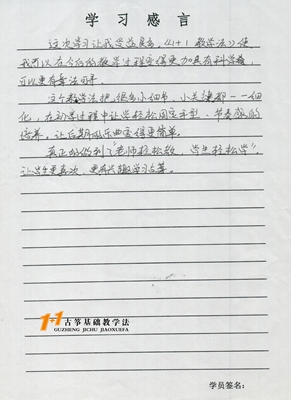 学习感言
这次学习让我受益良多，《1+1教学法》使
我可以在今后的教学过程变得更加具有科学系，
可以更有章法可寻。
这个教学法把很多小细节，小关键都一一细
化，在初学过程中让学轻松固定手型、节奏感的
培养，让后期风乐曲变得更简单。
真正的做到了"老师轻松教，学生轻松学"，
让学生更喜欢、更有兴趣学习古筝。
1+1古筝基础教学法
GUZHENG JICHU JIAOXUEFA
学员签名：